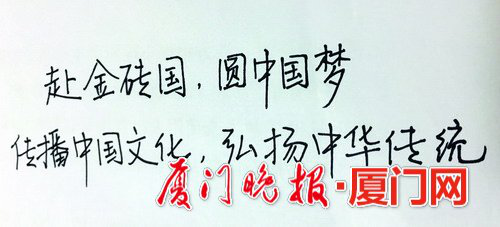 赴金砖国，圆中国梦
传播中国文化，弘扬中华传统
厦门晚报·厦门网